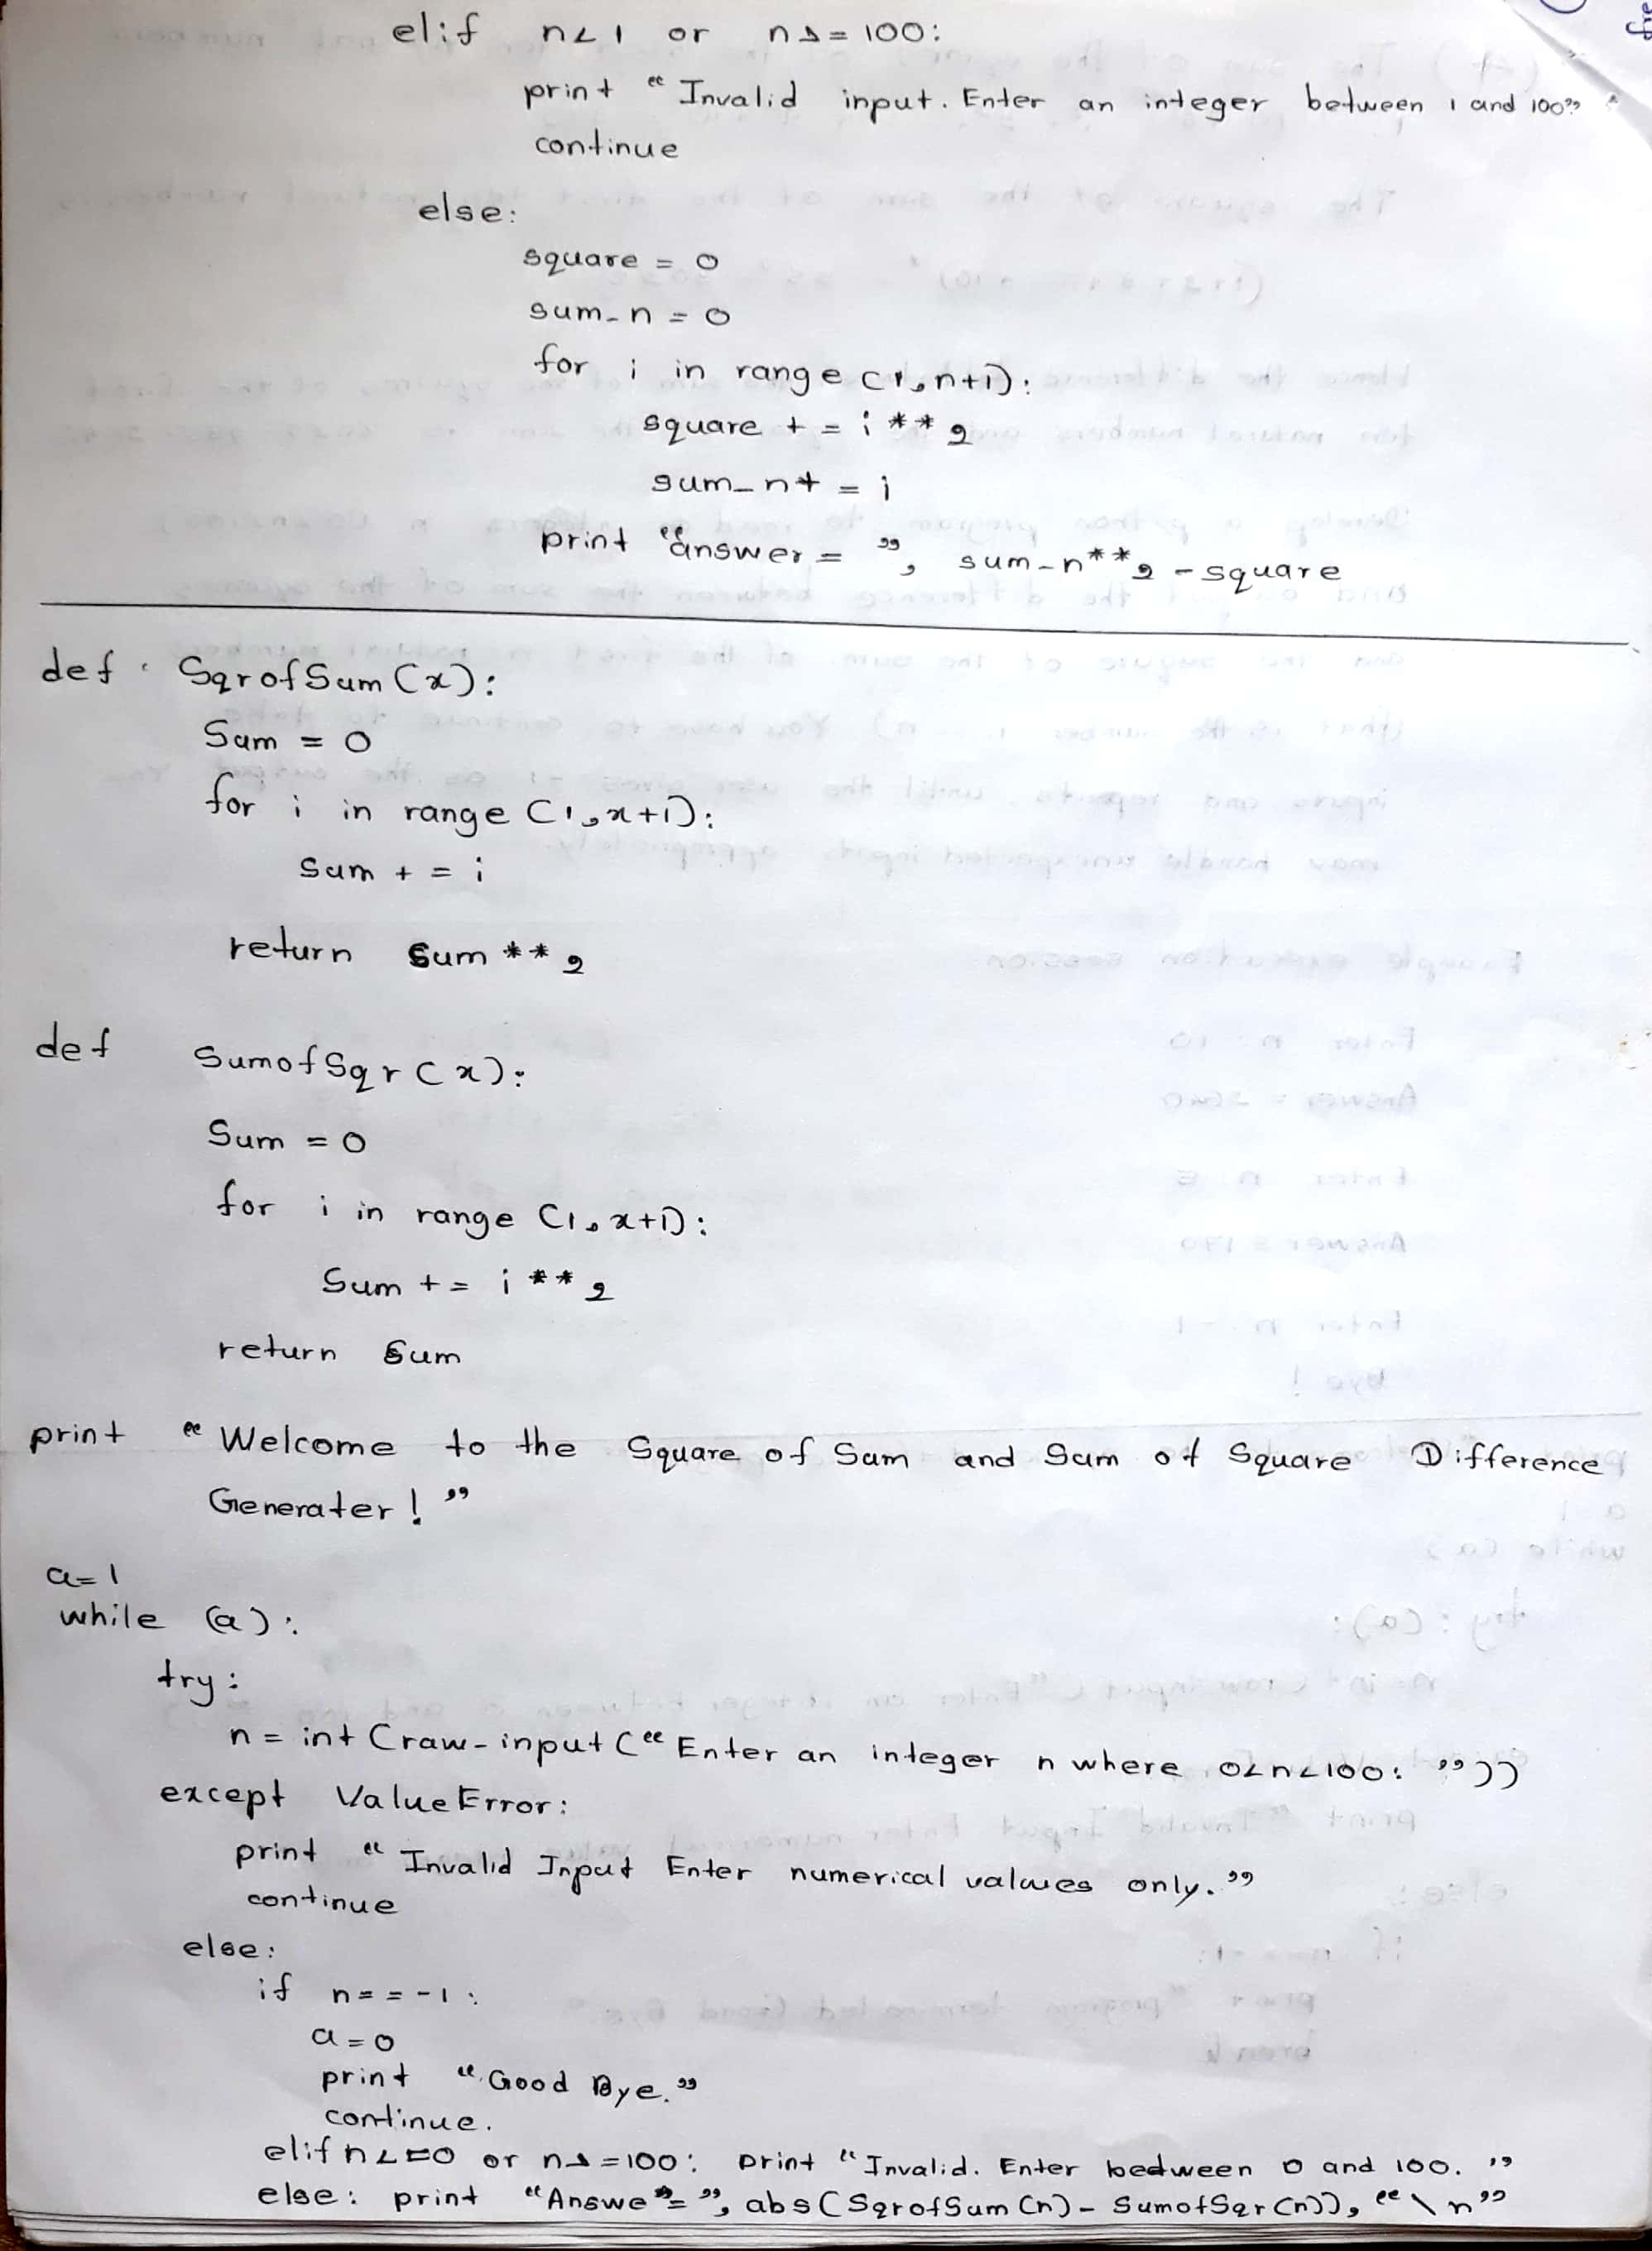 elif n<1 or n>=100:
print "Invalid input. Enter an integer between 1 and 100"
continue
else:
square = 0
sum_n = 0
for i in range (1,n+1):
square += i**2
sum_n+ = i
print "answer = ", sum_n**2 - square
def SqrofSum (x):
Sum = 0
for i in range (1,x+1):
Sum += i
return Sum**2
def SumofSqr(x):
Sum = 0
for i in range (1,x+1):
Sum += i**2
return Sum
print "Welcome to the Square of Sum and Sum of Square Difference
Generater!"
a=1
while (a):
try:
n = int (raw-input ("Enter an integer n where 0<n<100: "))
except ValueError:
print "Invalid Input Enter numerical values only."
continue
else:
if n==-1:
a=0
print "Good Bye."
continue.
elif n<=0 or n>=100: print "Invalid. Enter between 0 and 100. "
else: print "Answe = ", abs(SqrofSum(n) - SumofSqr(n)), "\n"